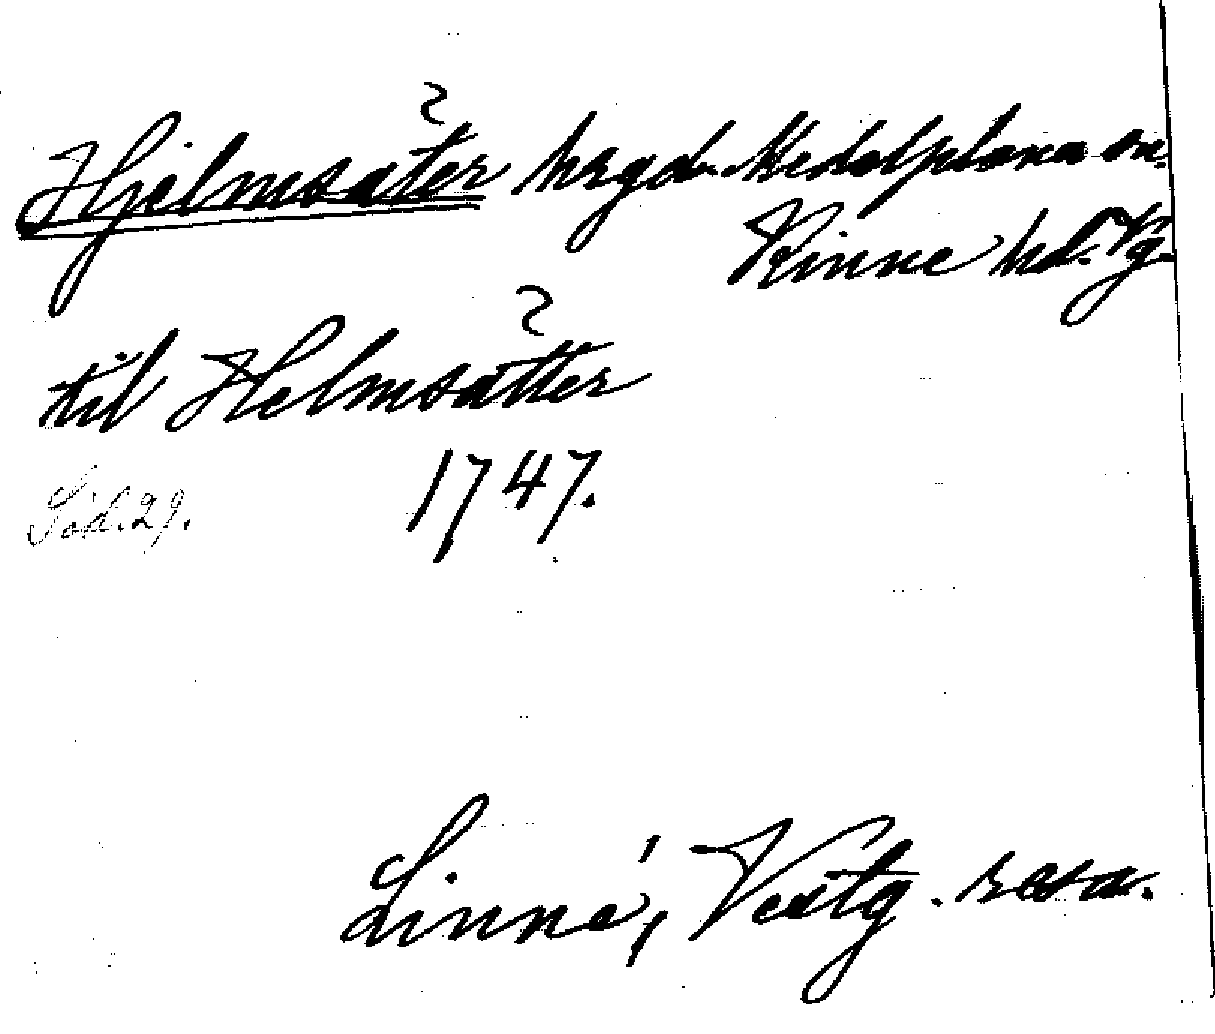 Hjelmsäter hrgd. Medelplana sn.
Kinne hd. Vg.
til Helmsätter
1747.
Söd. 29.
Linné, Västg. resa.